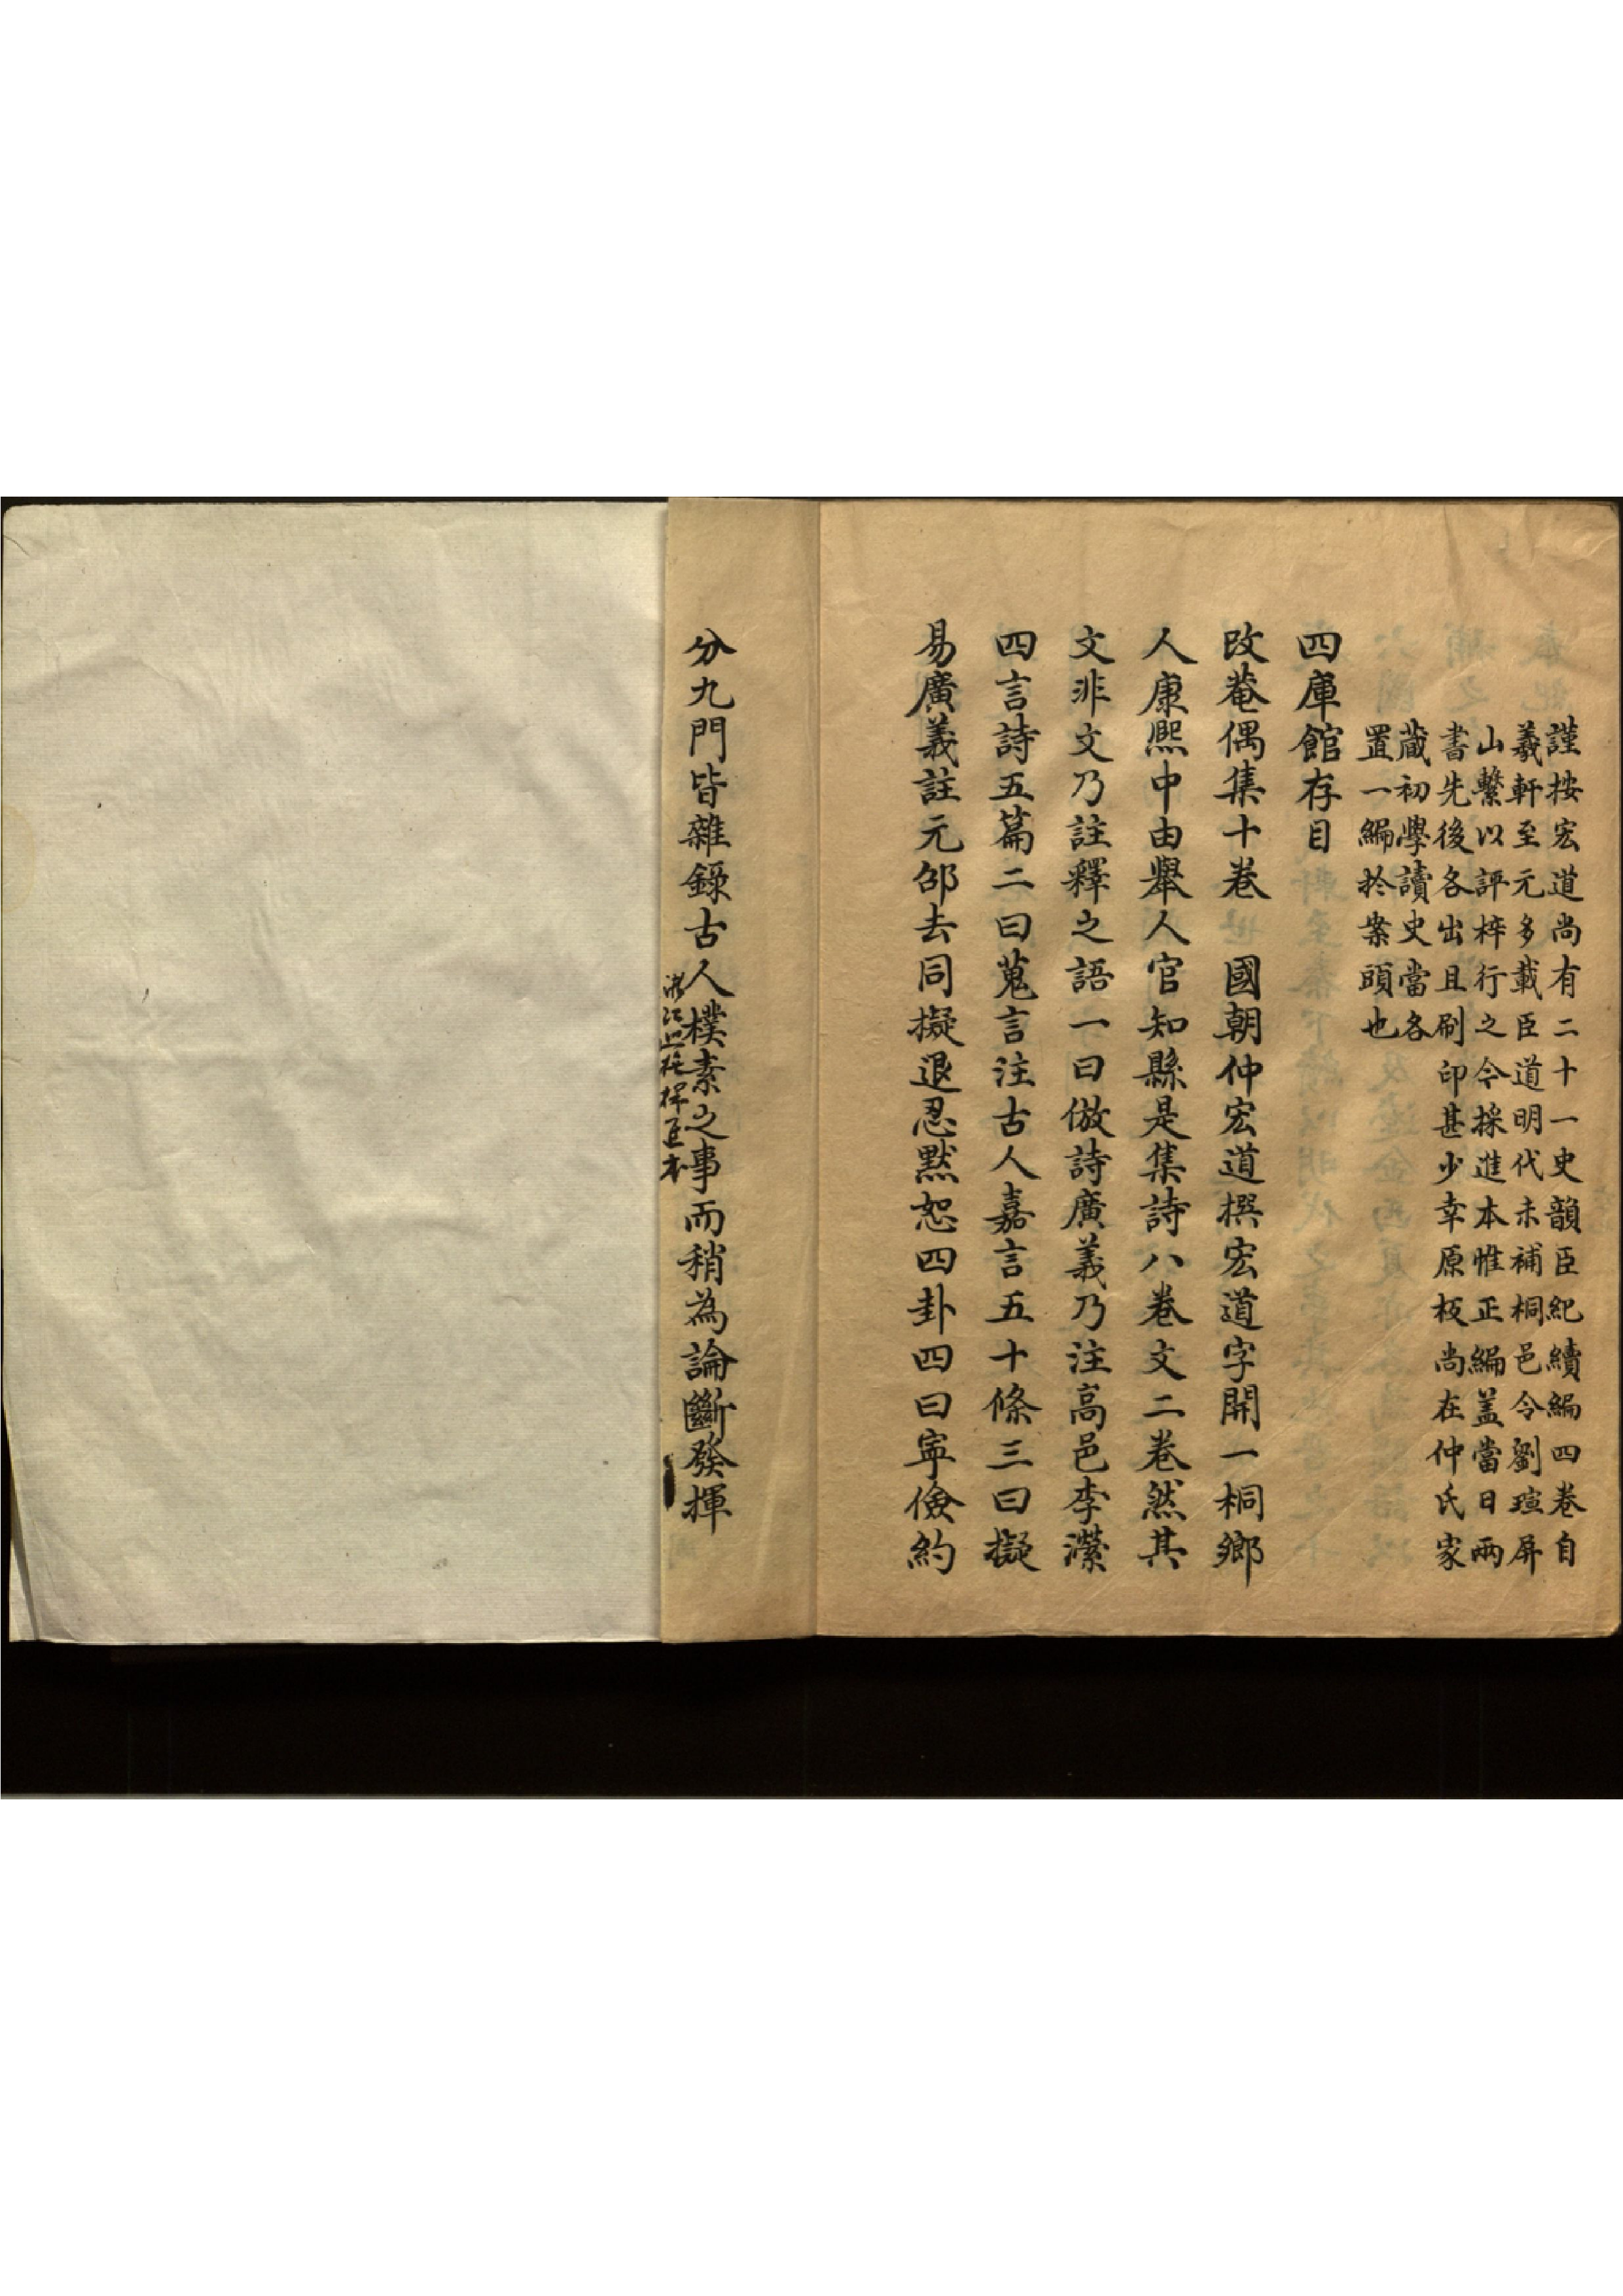 謹按宏道尚有二十一史韻臣紀續編四卷自
羲軒至元多載臣道明代未補桐邑令劉瑄屏
山繫以評梓行之今採進本惟正編盖當日兩
書先後各出且刷印甚少幸原板尚在仲氏家
藏初學讀史當各
置一編於案頭也
四庫館存目
改菴偶集十卷　國朝仲宏道撰宏道字開一桐鄉
人康熙中由舉人官知縣是集詩八卷文二卷然其
文非文乃註釋之語一曰倣詩廣義乃注高邑李瀠
四言詩五篇二曰蒐言注古人嘉言五十條三曰擬
易廣義註元邵去同擬退忍默恕四卦四曰寧儉約
分九門皆雜錄古人樸素之事而稍為論斷發揮